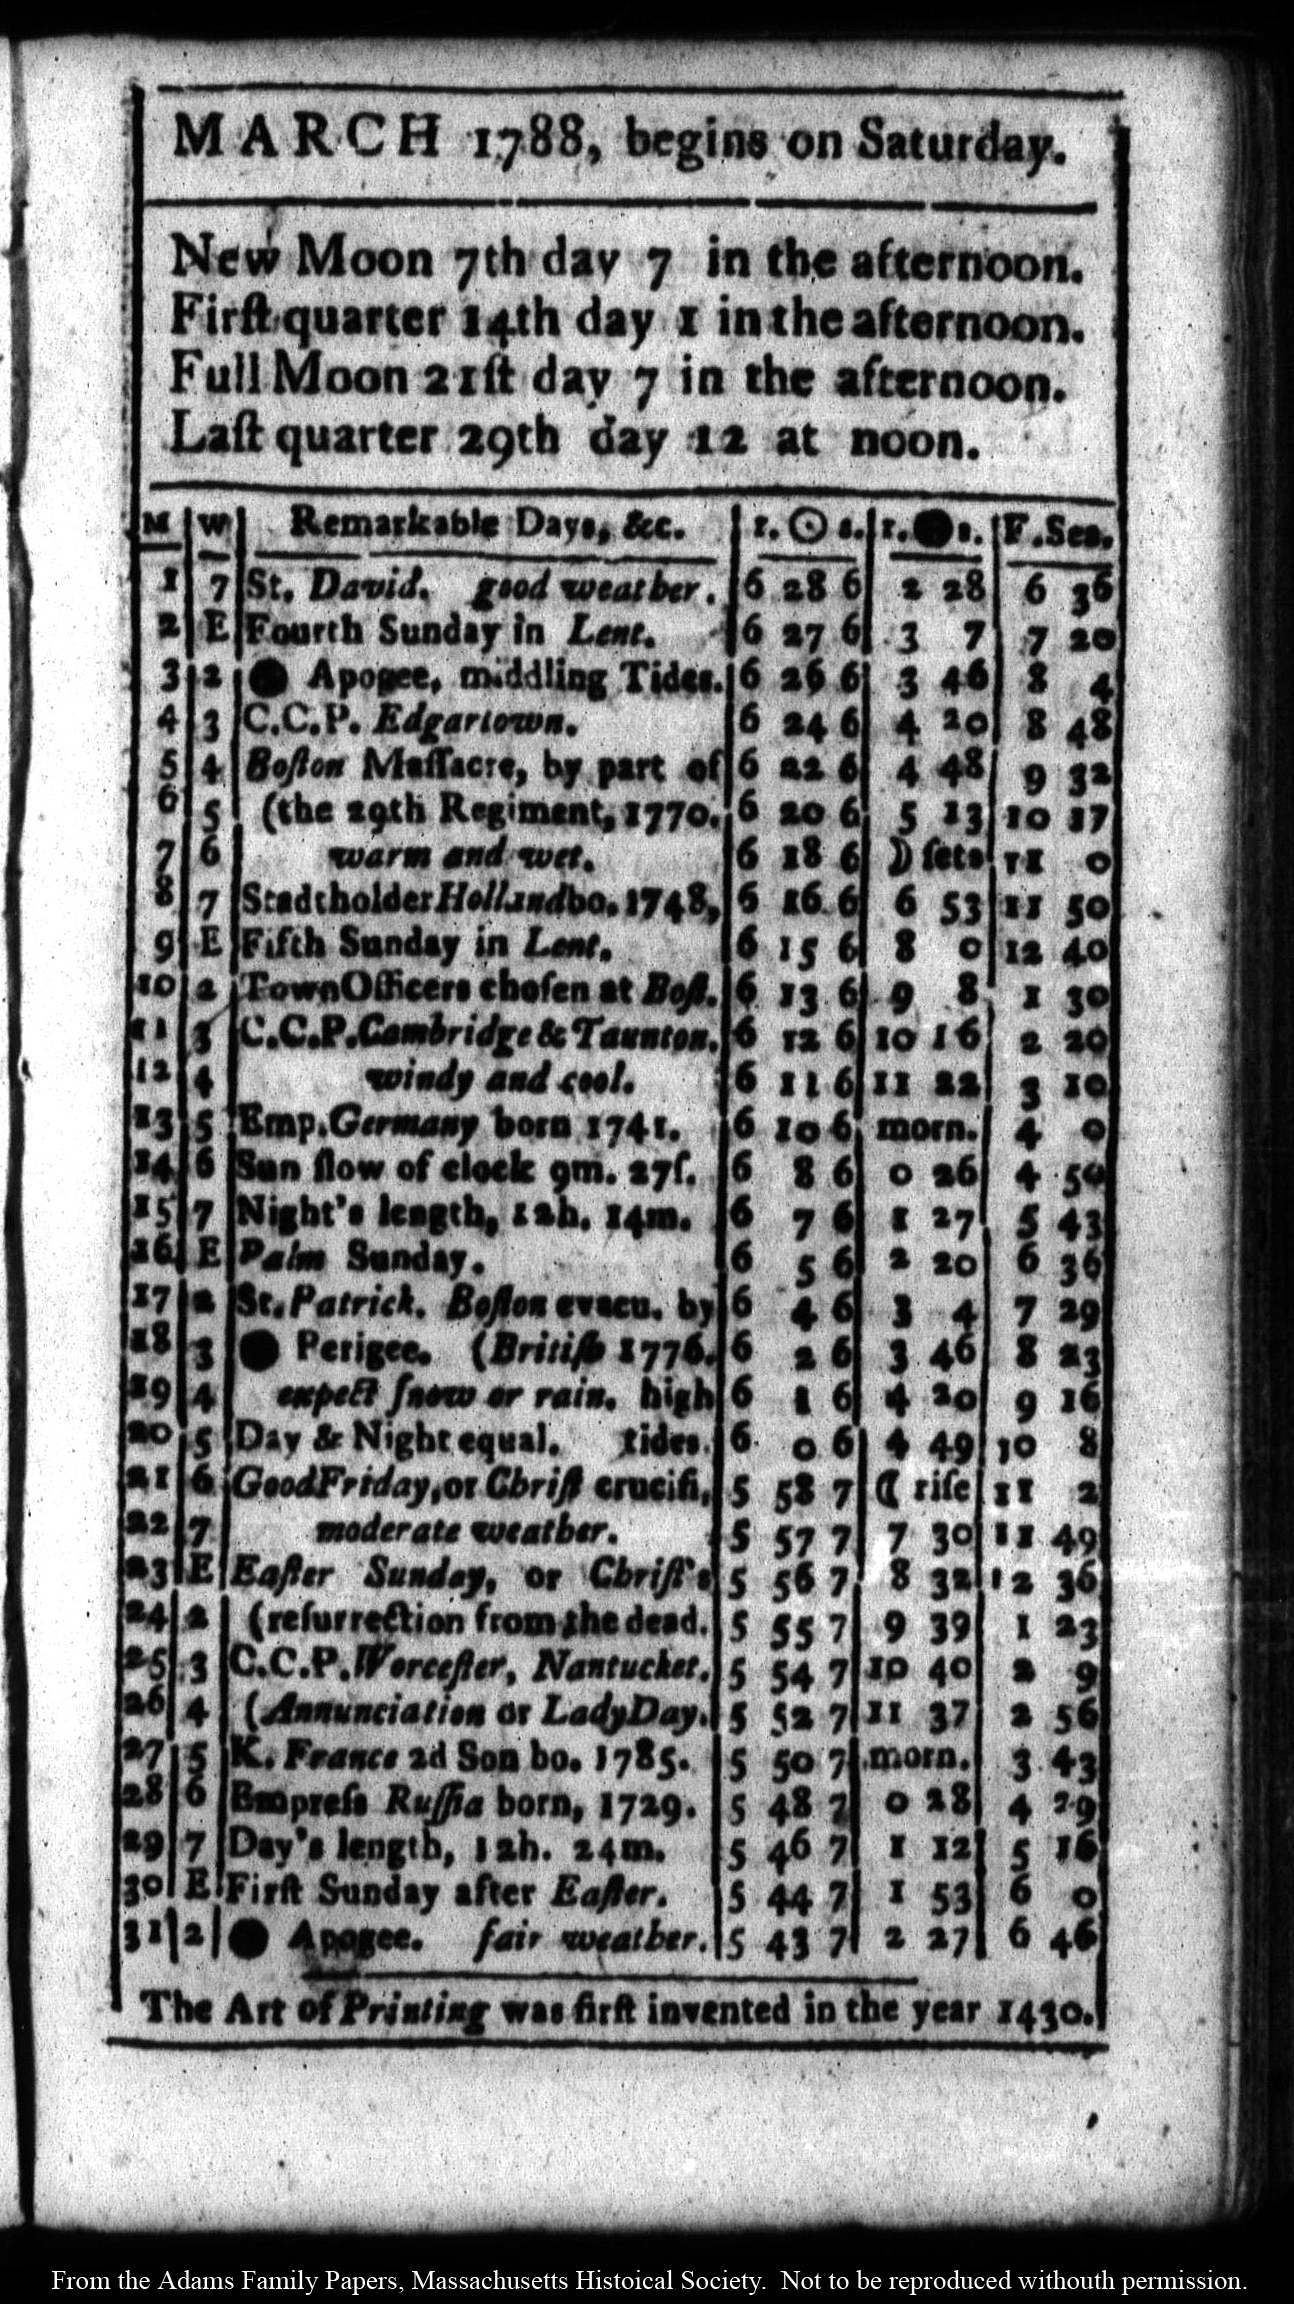 MARCH 1788, begins on Saturday.
New Moon 7th day 7 in the afternoon.
Firſt quarter 14th day 1 in the afternoon.
Full Moon 21ſt day 7 in the afternoon.
Laſt quarter 29th day 12 at noon.
M W Remarkable Days, &c. r. ☉ s. r. ● s. F. Sea.
1 7 St. David. good weather. 6 28 6 2 28 6 36
2 E Fourth Sunday in Lent. 6 27 6 3 7 7 20
3 2 ● Apogee, middling Tides. 6 26 6 3 46 8 4
4 3 C.C.P. Edgartown. 6 24 6 4 20 8 48
5 4 Boſton Maſſacre, by part of 6 22 6 4 48 9 32
6 5 (the 29th Regiment, 1770. 6 20 6 5 13 10 17
7 6 warm and wet. 6 18 6 ☽ ſets 11 0
8 7 Stadtholder Holland bo. 1748, 6 16 6 6 53 11 50
9 E Fifth Sunday in Lent. 6 15 6 8 0 12 40
10 2 Town Officers choſen at Boſ. 6 13 6 9 8 1 30
11 3 C.C.P. Cambridge & Taunton. 6 12 6 10 16 2 20
12 4 windy and cool. 6 11 6 11 22 3 10
13 5 Emp. Germany born 1741. 6 10 6 morn. 4 0
14 6 Sun ſlow of clock 9m. 27ſ. 6 8 6 0 26 4 50
15 7 Night's length, 12h. 14m. 6 7 6 1 27 5 43
16 E Palm Sunday. 6 5 6 2 20 6 36
17 2 St. Patrick. Boſton evacu. by 6 4 6 3 4 7 29
18 3 ● Perigee. (Britiſh 1776. 6 2 6 3 46 8 23
19 4 expect ſnow or rain. high 6 1 6 4 20 9 16
20 5 Day & Night equal. tides. 6 0 6 4 49 10 8
21 6 Good Friday, or Chriſt crucifi, 5 58 7 ☾ riſe 11 2
22 7 moderate weather. 5 57 7 7 30 11 49
23 E Eaſter Sunday, or Chriſt's 5 56 7 8 32 12 36
24 2 (reſurrection from the dead. 5 55 7 9 39 1 23
25 3 C.C.P. Worceſter, Nantucket. 5 54 7 10 40 2 9
26 4 (Annunciation or Lady Day. 5 52 7 11 37 2 56
27 5 K. France 2d Son bo. 1785. 5 50 7 morn. 3 43
28 6 Empreſs Ruſſia born, 1729. 5 48 7 0 28 4 29
29 7 Day's length, 12h. 24m. 5 46 7 1 12 5 16
30 E Firſt Sunday after Eaſter. 5 44 7 1 53 6 0
31 2 ● Apogee. fair weather. 5 43 7 2 27 6 46
The Art of Printing was firſt invented in the year 1430.
From the Adams Family Papers, Massachusetts Histoical Society. Not to be reproduced withouth permission.